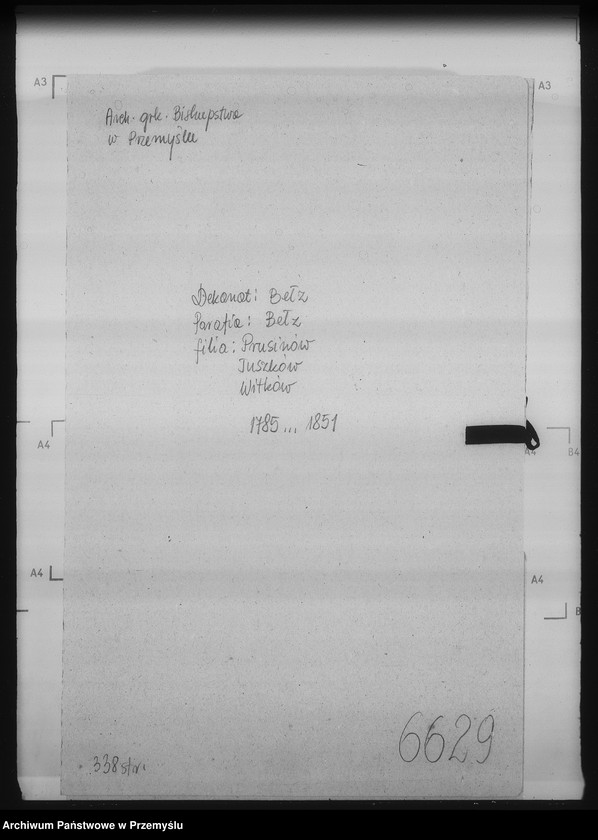 A3
A3
Arch. grk. Biskupstwa
w Przemyślu
Dekanat: Bełz
Parafia: Bełz
filia: Prusinów
Juszków
Witków
1785... 1851
A4
A4
B4
A4
A4
B
6629
338 str.
Archiwum Państwowe w Przemyślu